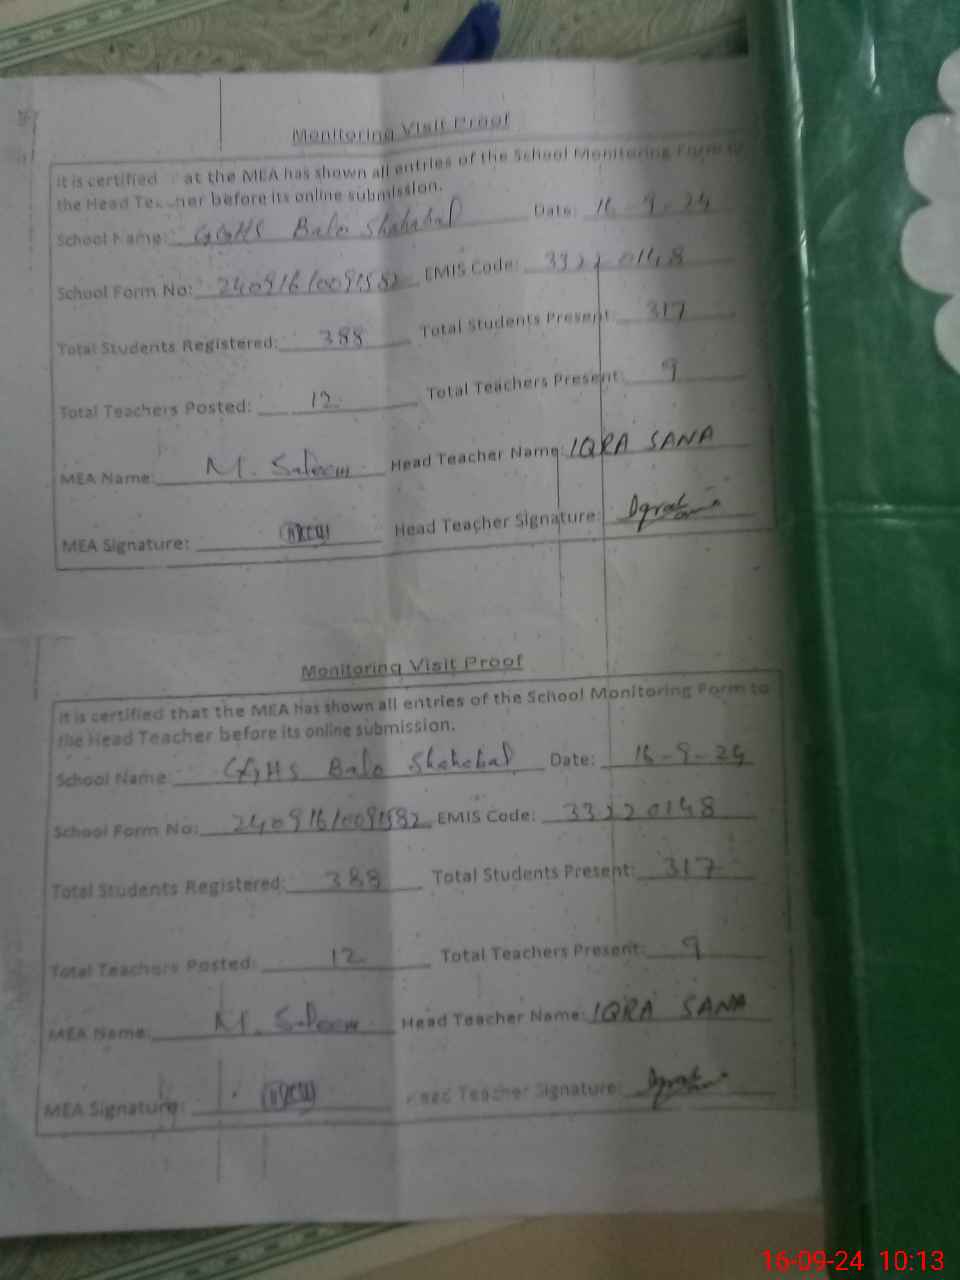 Monitoring Visit Proof
It is certified at the MEA has shown all entries of the School Monitoring Form to
the Head Teacher before its online submission.
School Name: GGHS Balo Shahabal Date: 16-9-24
School Form No: 240916/0091582 EMIS Code: 33220148
Total Students Registered: 388 Total Students Present: 317
Total Teachers Posted: 12 Total Teachers Present: 9
MEA Name: M. Saleem Head Teacher Name: IQRA SANA
MEA Signature: Head Teacher Signature:
Monitoring Visit Proof
It is certified that the MEA has shown all entries of the School Monitoring Form to
the Head Teacher before its online submission.
School Name: GGHS Balo Shahabal Date: 16-9-24
School Form No: 240916/0091582 EMIS Code: 33220148
Total Students Registered: 388 Total Students Present: 317
Total Teachers Posted: 12 Total Teachers Present: 9
MEA Name: M. Saleem Head Teacher Name: IQRA SANA
MEA Signature: Head Teacher Signature:
16-09-24 10:13